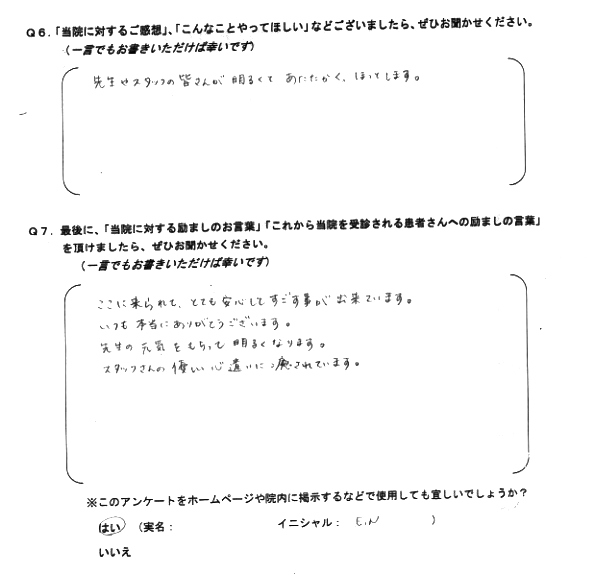 Q6.「当院に対するご感想」、「こんなことやってほしい」などございましたら、ぜひお聞かせください。
（一言でもお書きいただけば幸いです）
先生やスタッフの皆さんが明るくてあたたかく、ほっとします。
Q7. 最後に、「当院に対する励ましのお言葉」「これから当院を受診される患者さんへの励ましの言葉」
を頂けましたら、ぜひお聞かせください。
（一言でもお書きいただけば幸いです）
ここに来られて、とても安心してすごす事が出来ています。
いつも本当にありがとうございます。
先生の元気をもらって明るくなります。
スタッフさんの優しい心遣いに癒されています。
※このアンケートをホームページや院内に掲示するなどで使用しても宜しいでしょうか？
はい （実名： イニシャル： E.N ）
いいえ